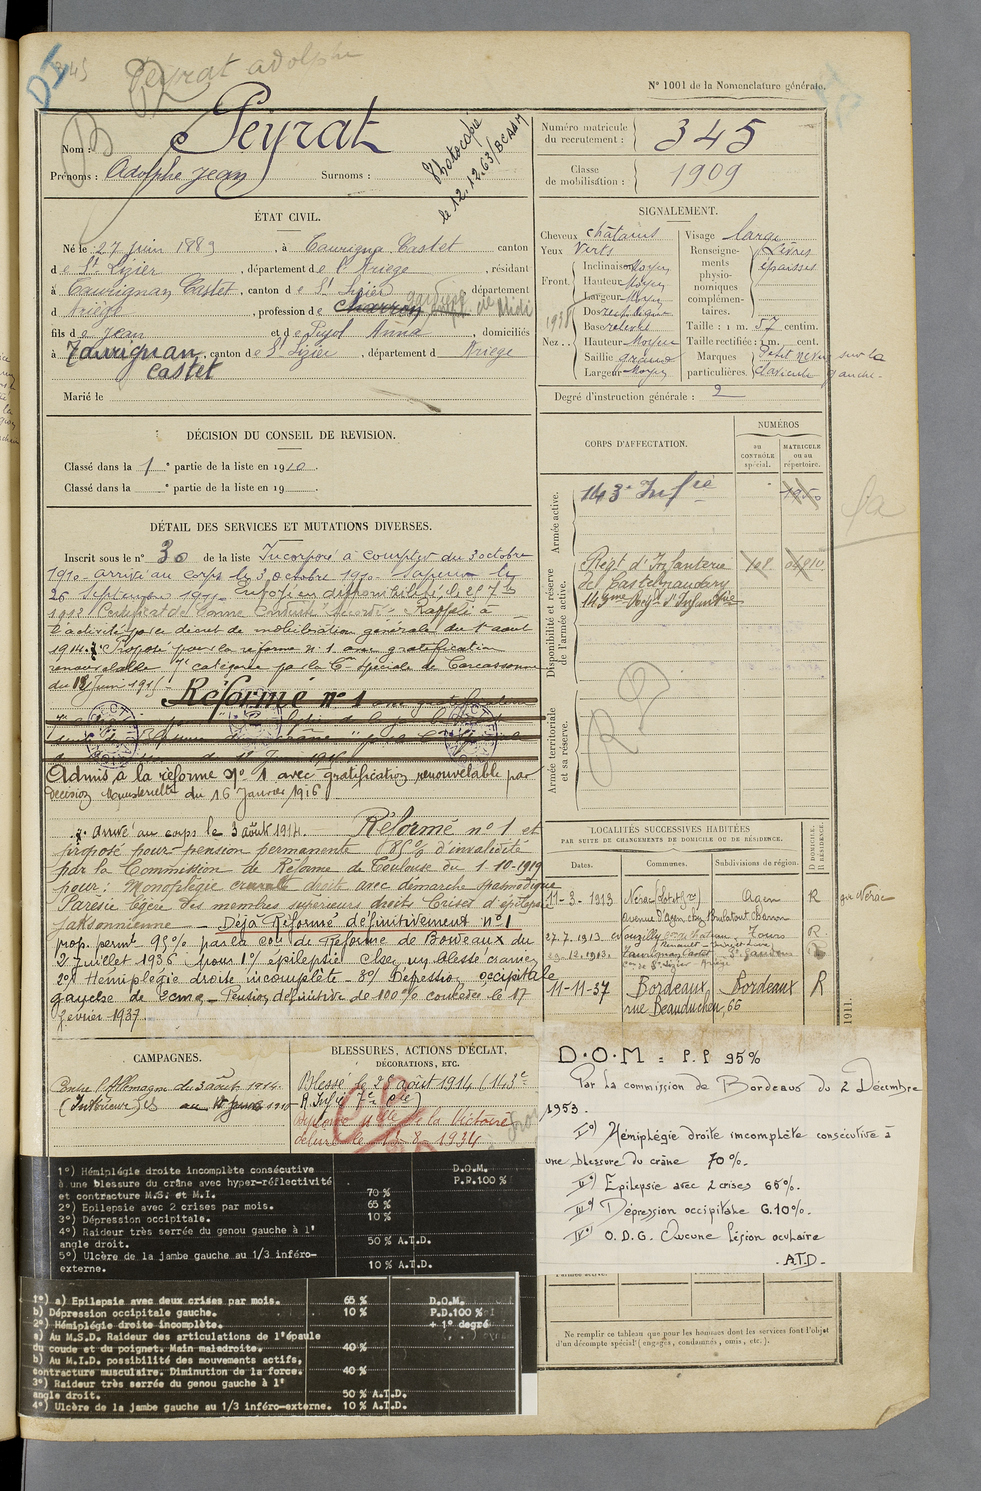 Peyrat adolphe
N° 1001 de la Nomenclature générale.
Nom : Peyrat
Prénoms : Adolphe Jean Surnoms :
Photocopie
le 12.12.63/BCAAM
Numéro matricule
du recrutement : 345
Classe
de mobilisation : 1909
ÉTAT CIVIL.
Né le 27 Juin 1889, à Taurignan Castet canton
de St Lizier, département de l'Ariège, résidant
à Taurignan Castet, canton de St Lizier, département
d Ariège, profession de Charron
fils de Jean et de Pujol Anna, domiciliés
à Taurignan Castet, canton de St Lizier, département d Ariège
Marié le
SIGNALEMENT.
Cheveux châtains
Yeux Verts
Front. Inclinaison Moyen
Hauteur Moyen
Largeur Moyen
Nez.. Dos rectiligne
Base relevée
Hauteur Moyen
Saillie grand
Largeur Moyen
Visage large
Renseignements physionomiques complémentaires. Lèvres épaisses
Taille : 1 m. 57 centim.
Taille rectifiée : 1 m. cent.
Marques particulières. Petit nevus sur la clavicule gauche.
Degré d'instruction générale : 2
DÉCISION DU CONSEIL DE REVISION.
Classé dans la 1e partie de la liste en 1910.
Classé dans la e partie de la liste en 19
CORPS D'AFFECTATION.
NUMÉROS
DU CONTRÔLE spécial.
MATRICULE ou au répertoire.
Armée active.
143e Infie 1950
Disponibilité et réserve de l'armée active.
Régt d'Infanterie
de Castelnaudary
143ème Régt d'Infanterie
Armée territoriale et sa réserve.
DÉTAIL DES SERVICES ET MUTATIONS DIVERSES.
Inscrit sous le n° 30 de la liste Incorporé à compter du 3 octobre
1910 arrivé au corps le 3 octobre 1910. Sapeur le
26 septembre 1911. Envoyé en disponibilité le 25 7bre
1912 Certificat de bonne Conduite "Accordé". Rappelé à
l'activité par le décret de mobilisation générale du 1er août
1914. Proposé pour la réforme n° 1 avec gratification
renouvelable catégorie par la Con spéciale de Carcassonne
du 18 Juin 1915. Réformé n° 1
Admis à la réforme N° 1 avec gratification renouvelable par
décision ministérielle du 16 Janvier 1916
arrivé au corps le 3 août 1914. Réformé n° 1 et
proposé pour pension permanente 85% d'invalidité
par la Commission de Réforme de Toulouse du 1-10-1919
pour : Monoplégie crurale droite avec démarche spasmodique
Parésie légère des membres supérieurs droits Crises d'épilepsie
jaksonnienne — Déjà Réformé définitivement n° 1
prop. permt 95% par la con de Réforme de Bordeaux du
2 juillet 1936 pour 1°) épilepsie chez un blessé cranien
2°) Hémiplégie droite incomplète - 3°) Dépression occipitale
gauche de 2cmq - Pension définitive de 100% concédée le 17
février 1937.
LOCALITÉS SUCCESSIVES HABITÉES
PAR SUITE DE CHANGEMENTS DE DOMICILE OU DE RÉSIDENCE.
Dates. Communes. Subdivisions de région. D DOMICILE. R RÉSIDENCE.
11-3-1913 Nérac (Lot et Gne) Agen R gie Nérac
avenue d'Agen chez Brulatout Charron
27.7.1913 Nouzilly Tours R
29.12.1913. Taurignan Castet St Gaudens
con de St Lizier Ariège
11-11-37 Bordeaux Bordeaux R
rue Beauducheu, 66
1911.
CAMPAGNES.
Contre l'Allemagne du 3 août 1914
(Intérieure)
BLESSURES, ACTIONS D'ÉCLAT,
DÉCORATIONS, ETC.
Blessé le 20 août 1914 (143e
R. Infie 7e Cie)
Diplôme Médle de la Victoire
délivré le 1-8-1934
D.O.M = P.P 95%
Par la commission de Bordeaux du 2 Décembre
1953.
I°) Hémiplégie droite incomplète consécutive à
une blessure du crâne 70%.
II°) Epilepsie avec 2 crises 65%.
III°) Dépression occipitale G. 10%.
IV°) O.D.G. Aucune lésion oculaire
. A.T.D.
1°) Hémiplégie droite incomplète consécutive
à une blessure du crâne avec hyper-réflectivité
et contracture M.S. et M.I. 70 %
2°) Epilepsie avec 2 crises par mois. 65 %
3°) Dépression occipitale. 10 %
4°) Raideur très serrée du genou gauche à l'
angle droit. 50 % A.T.D.
5°) Ulcère de la jambe gauche au 1/3 inféro-
externe. 10 % A.T.D.
D.O.M.
P.P.100 %
1°) a) Epilepsie avec deux crises par mois. 65 % D.O.M.
b) Dépression occipitale gauche. 10 % P.D.100 %
2°) Hémiplégie droite incomplète. + 1° degré
a) Au M.S.D. Raideur des articulations de l'épaule
du coude et du poignet. Main maladroite. 40 %
b) Au M.I.D. possibilité des mouvements actifs,
contracture musculaire. Diminution de la force. 40 %
3°) Raideur très serrée du genou gauche à l'
angle droit. 50 % A.T.D.
4°) Ulcère de la jambe gauche au 1/3 inféro-externe. 10 % A.T.D.
Ne remplir ce tableau que pour les hommes dont les services font l'objet
d'un décompte spécial (engagés, condamnés, omis, etc.).